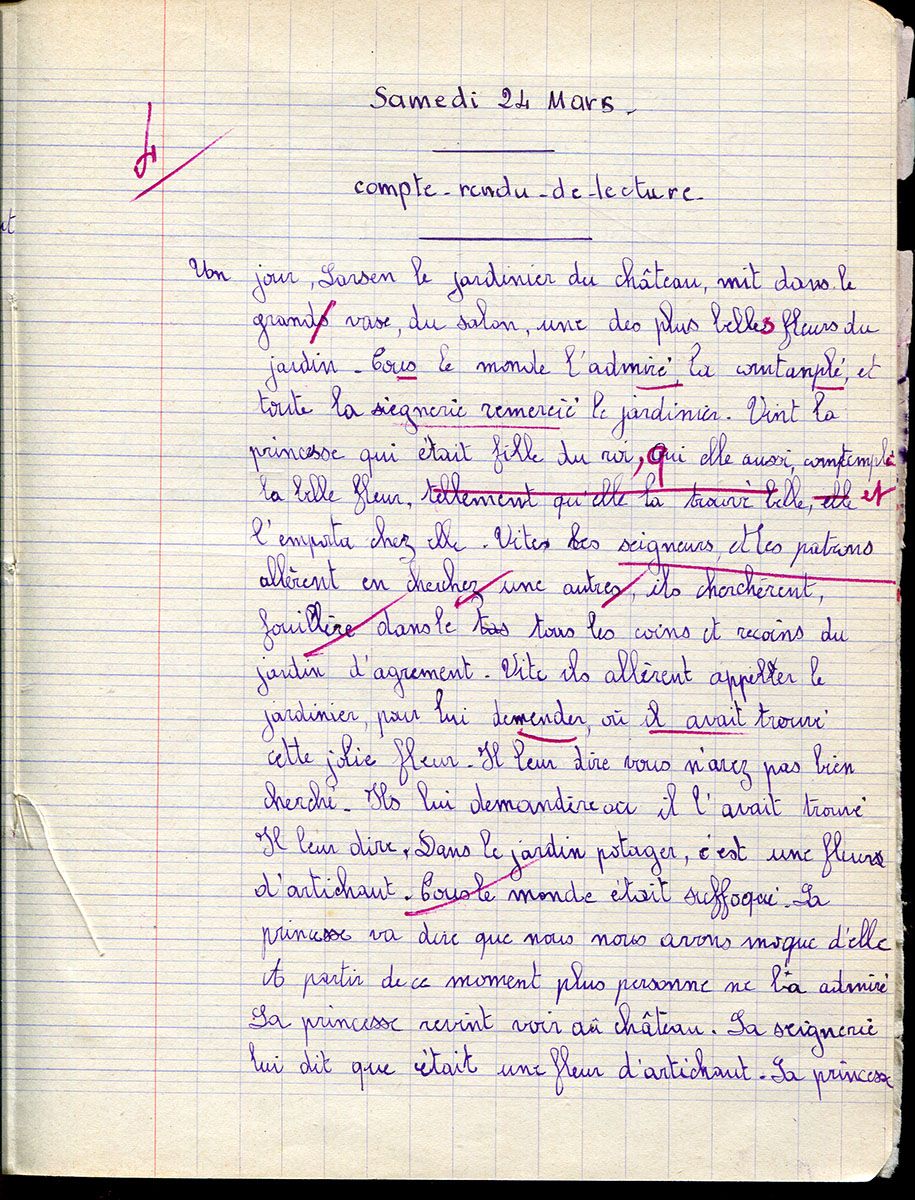 Samedi 24 Mars.
compte-rendu-de-lecture
Un jour, Larsen le jardinier du château, mit dans le
grands vase, du salon, une des plus belles fleurs du
jardin. Tous le monde l'admiré, la contanplé, et
toute la siegnerie remercié le jardinier. Vint la
princesse qui était fille du roi, qui elle aussi, comtempla
la belle fleur, tellement qu'elle la trouvé belle, elle et
l'emporta chez elle. Vites les seigneurs, et les patrons
allèrent en cherchez une autres, ils cherchèrent,
fouillère dans le tas tous les coins et recoins du
jardin d'agrement. Vite ils allèrent appeller le
jardinier, pour lui demender, où il avait trouvé
cette jolie fleur. Il leur dire vous n'avez pas bien
cherché. Ils lui demandère ou il l'avait trouvé
Il leur dire, Dans le jardin potager, c'est une fleurs
d'artichaut. Tous le monde était suffoqué. La
princesse va dire que nous nous avons moque d'elle
A partir de ce moment plus personne ne la admiré
La princesse revint voir au château. La seignerie
lui dit que était une fleur d'artichaut. La princesse